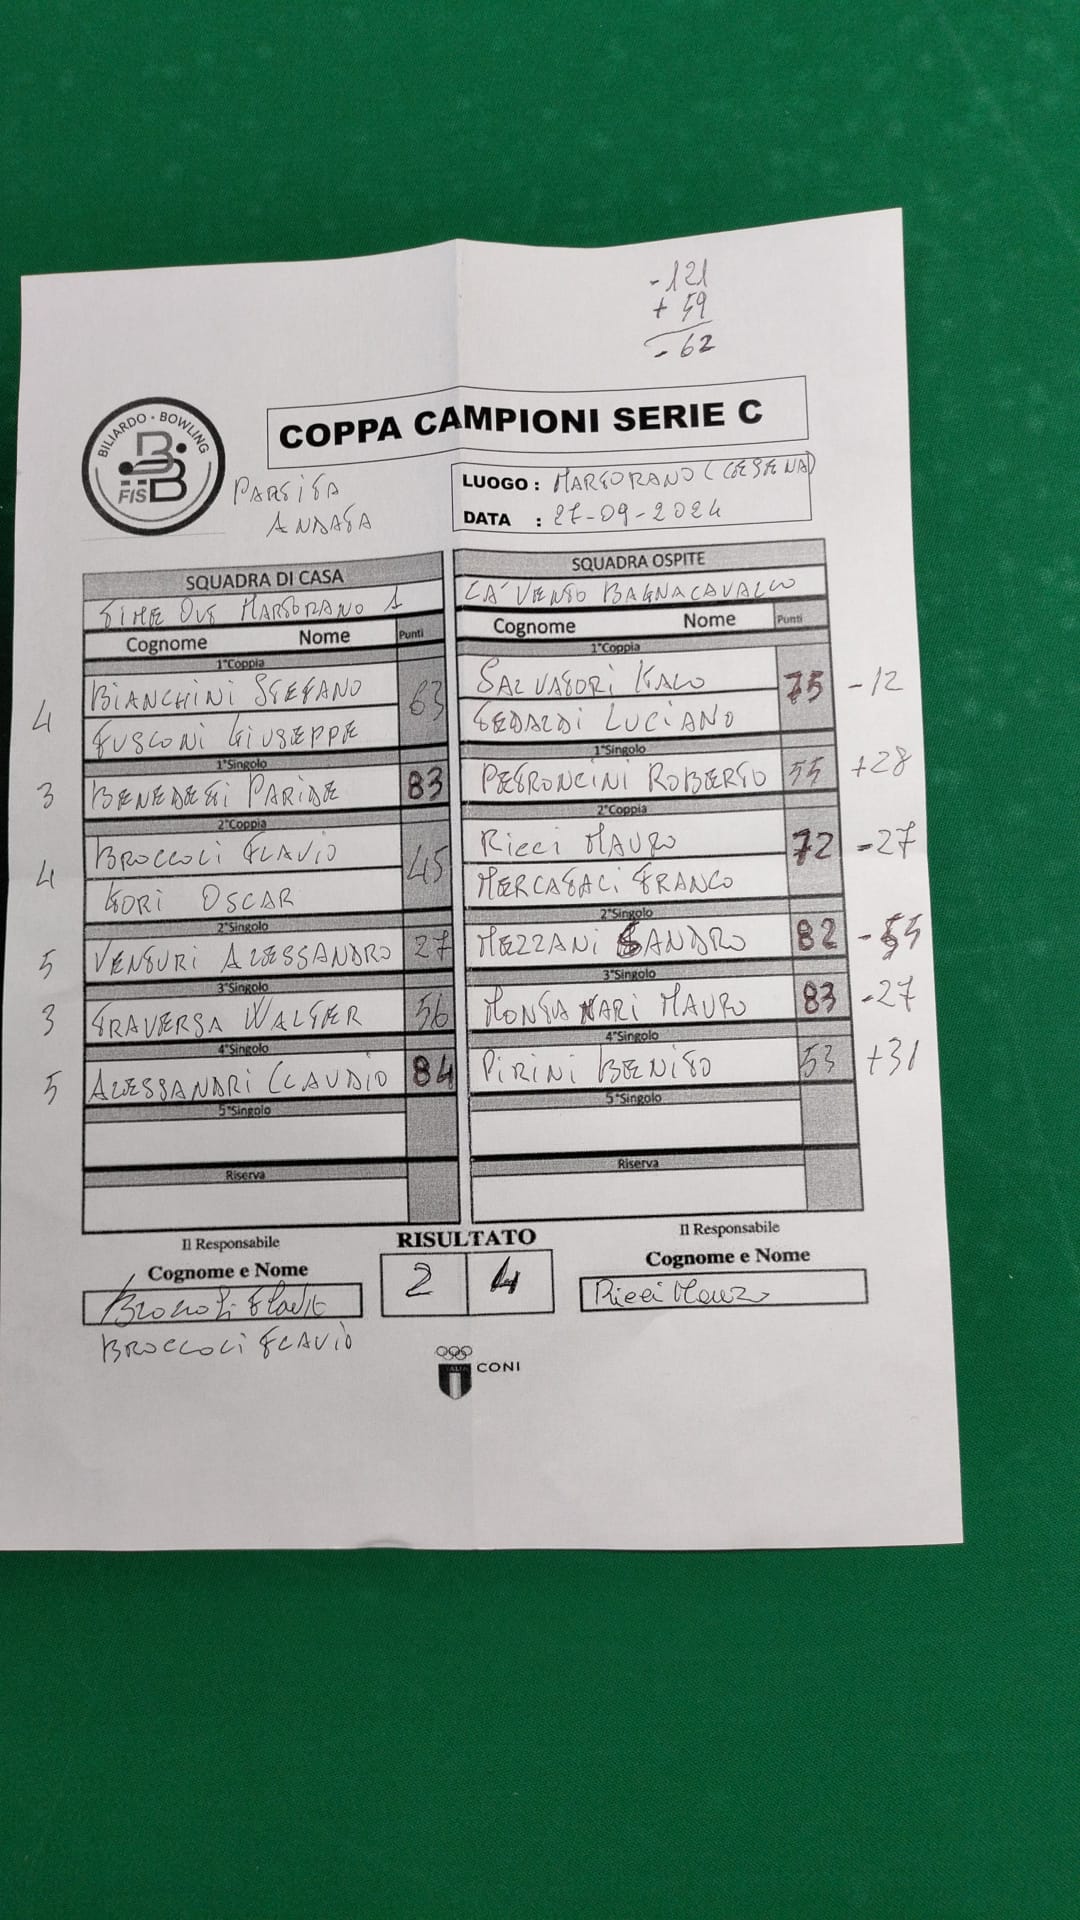 -121
+ 59
- 62
BILIARDO • BOWLING
FISBB
COPPA CAMPIONI SERIE C
PARTITA
ANDATA
LUOGO : MARTORANO (CESENA)
DATA : 27-09-2024
SQUADRA DI CASA SQUADRA OSPITE
TIME OUT MARTORANO 1 CA' VENTO BAGNACAVALLO
Cognome Nome Punti Cognome Nome Punti
1°Coppia 1°Coppia
4 BIANCHINI STEFANO 63 SALVATORI ITALO 75 -12
FUSCONI GIUSEPPE TEDALDI LUCIANO
1°Singolo 1°Singolo
3 BENEDETTI PARIDE 83 PETRONCINI ROBERTO 55 +28
2°Coppia 2°Coppia
4 BROCCOLI FLAVIO 45 RICCI MAURO 72 -27
GORI OSCAR MERCATALI FRANCO
2°Singolo 2°Singolo
5 VENTURI ALESSANDRO 27 MEZZANI SANDRO 82 -55
3°Singolo 3°Singolo
3 TRAVERSA WALTER 56 MONTANARI MAURO 83 -27
4°Singolo 4°Singolo
5 ALESSANDRI CLAUDIO 84 PIRINI BENITO 53 +31
5°Singolo 5°Singolo
Riserva Riserva
Il Responsabile RISULTATO Il Responsabile
Cognome e Nome 2 4 Cognome e Nome
Broccoli Flavio Ricci Mauro
BROCCOLI FLAVIO
ITALIA CONI